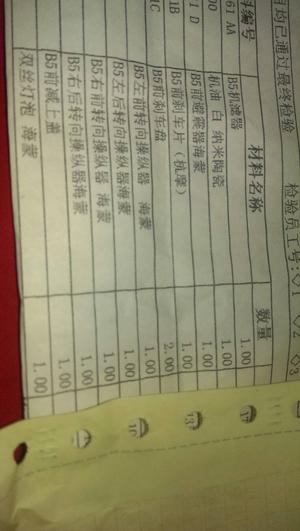 目均已通过最终检验 检验员工号:◇1 ◇2 ◇3
料编号 材料名称 数量
61 AA B5机滤器 1.00
00 机油 白 纳米陶瓷 1.00
1 D B5前避震器海蒙 1.00
1B B5前刹车片（杭摩） 1.00
1C B5前刹车盘 2.00
B5左前转向操纵器 海蒙 1.00
B5左后转向操纵器 海蒙 1.00
B5右前转向操纵器 海蒙 1.00
B5右后转向操纵器海蒙 1.00
B5前减上盖 1.00
双丝灯泡 海蒙 1.00